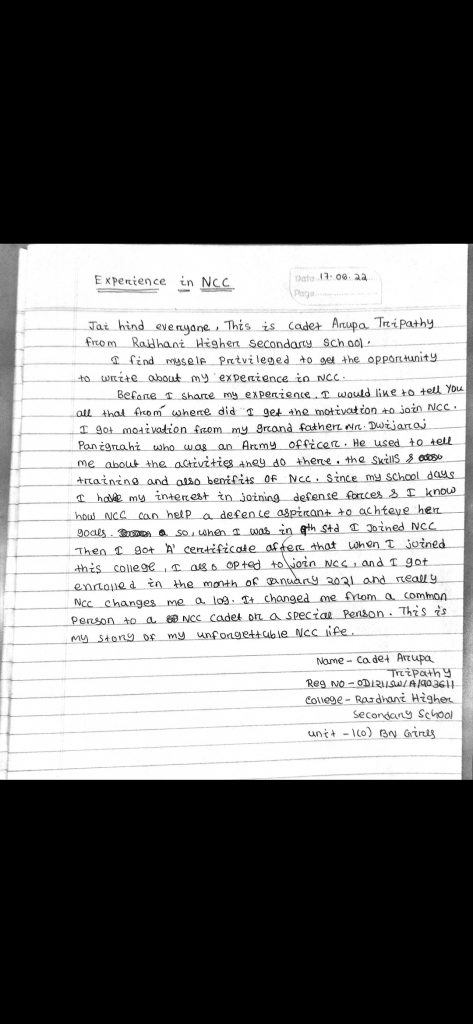 Experience in NCC
Date 17.08.22
Page
Jai hind everyone, This is cadet Arupa Tripathy
from Rajdhani Higher secondary school.
I find myself Privileged to get the opportunity
to write about my experience in NCC.
Before I share my experience, I would like to tell You
all that from where did I get the motivation to join NCC.
I got motivation from my grand father Mr. Dwijaraj
Panigrahi who was an Army officer. He used to tell
me about the activities they do there, the skills &
training and also benifits of NCC. Since my school days
I have my interest in joining defense forces & I know
how NCC can help a defence aspirant to achieve her
goals. so, when I was in 9th std I Joined NCC
Then I got 'A' certificate after that when I joined
this college, I also opted to join NCC, and I got
enrolled in the month of January 2021 and really
NCC changes me a log. It changed me from a common
Person to a NCC cadet or a special Person. This is
my story of my unforgettable NCC life.
Name - Cadet Arupa
Tripathy
Reg No - OD121/SW/A/903611
College - Rajdhani Higher
Secondary School
unit - 1(O) BN Girls